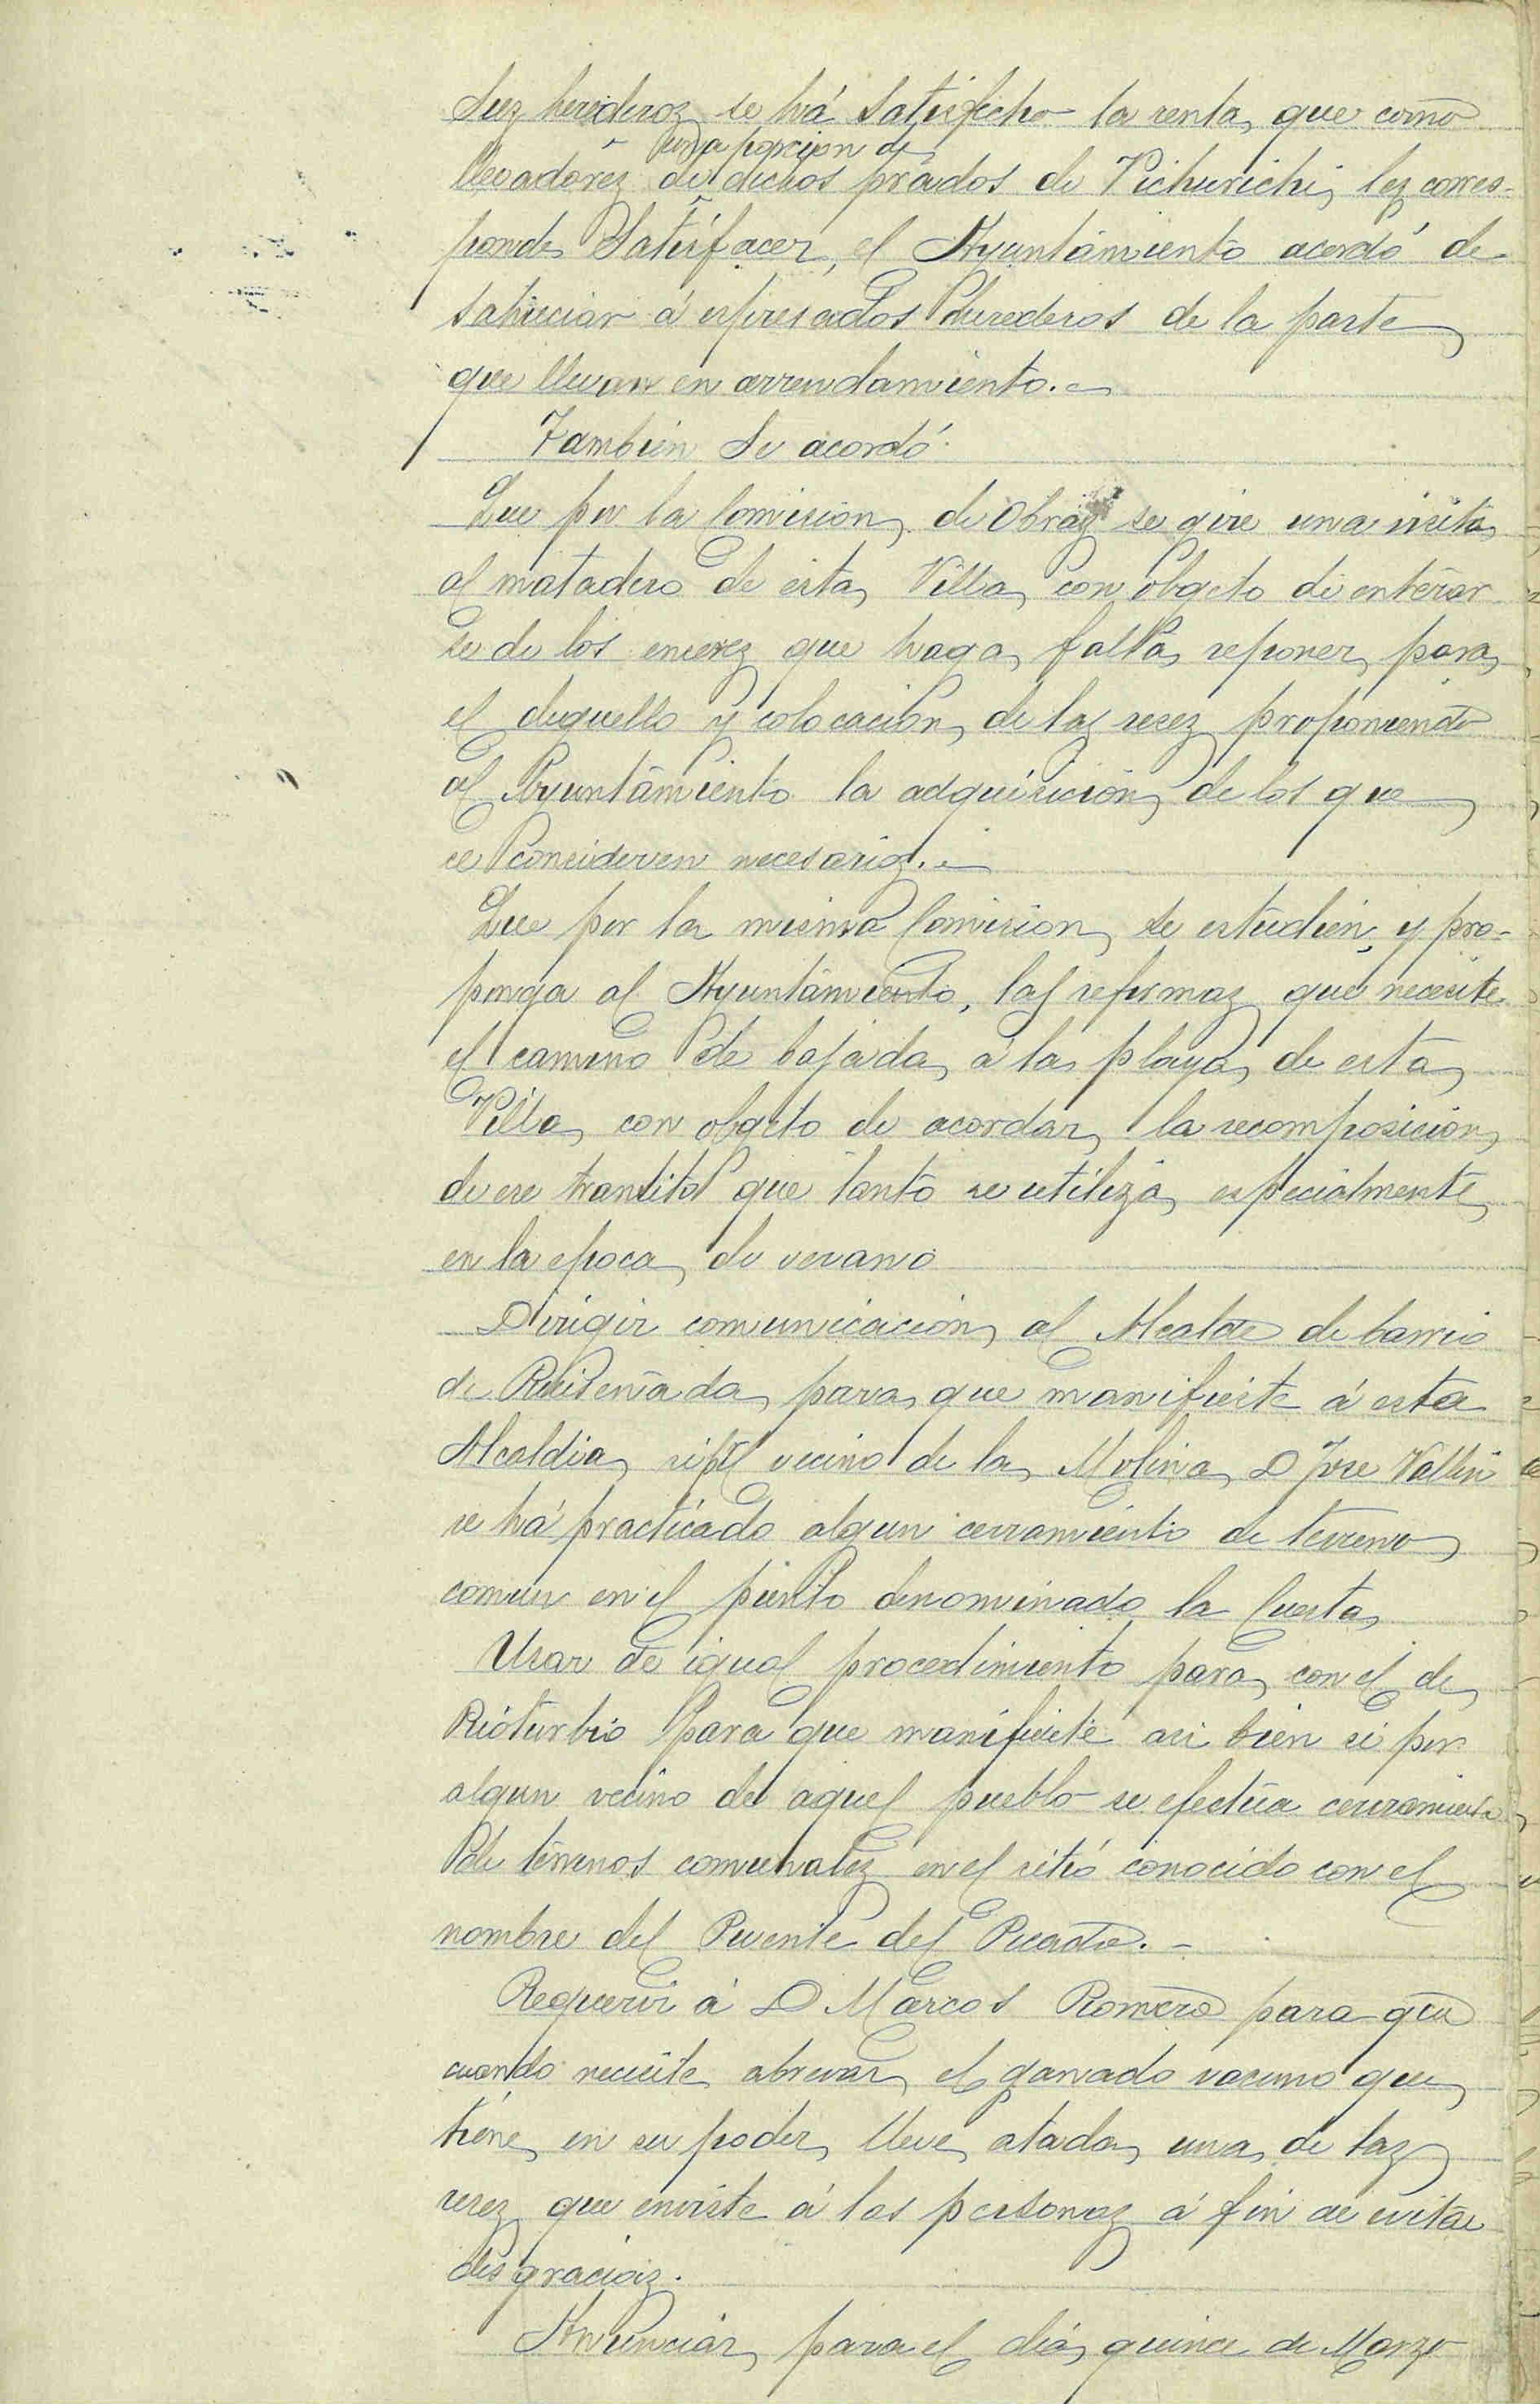 sus herederos se há satisfecho la renta, que como
una porcion de
llevadores de dichos prados de Pichurichi, les corres-
ponde satisfacer, el Ayuntamiento acordó de-
sahuciar á espresados herederos de la parte
que llevan en arrendamiento.
Tambien se acordó.
Que por la Comision de Obras se gire una visita
al matadero de esta Villa, con obgeto de enterar
se de los enceres que haga falta reponer para
el deguello y colocacion de las reses proponiendo
al Ayuntamiento la adquisicion de los que
se consideren necesarios.
Que por la misma Comision se estudien y pro-
ponga al Ayuntamiento, las reformas que necesite
el camino de bajada á la playa de esta
Villa, con obgeto de acordar la recomposicion
de ese transito que tanto se utiliza especialmente
en la epoca de verano
Dirigir comunicacion al Alcalde de barrio
de Ruiseñada para que manifieste á esta
Alcaldia, si el vecino de la Molina D Jose Vallin
se há practicado algun cerramiento de terreno
comun en el punto denominado la Cuesta
Usar de igual procedimiento para con el de
Rioturbio para que manifieste asi bien si por
algun vecino de aquel pueblo se efectúa cerramiento
de terrenos comunales en el sitio conocido con el
nombre del Puente del Picado.
Requerir á D Marcos Romero para que
cuando necesite abrevar el ganado vacuno que
tiene en su poder, lleve atada una de las
reses que enviste á las personas á fin de evitar
desgracias.
Anunciar para el dia quince de Marzo